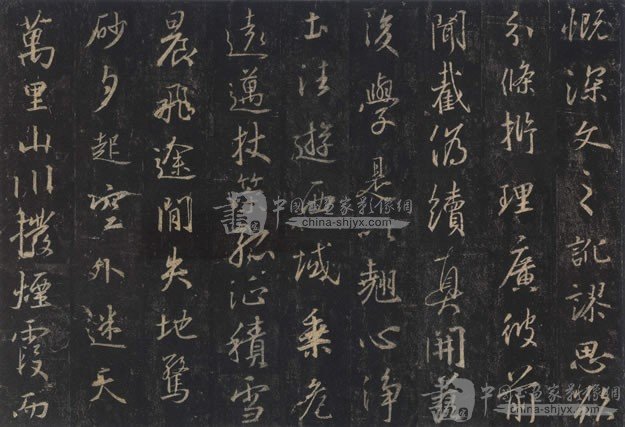 慨深文之訛謬思欲
分條析理廣彼前
聞截偽續真開
後學是以翹心淨
土往遊西域乘危
遠邁杖策孤征積雪
晨飛途間失地驚
砂夕起空外迷天
萬里山川撥煙霞而
中国书画家影像網
www.china-shjyx.com
中国书画家影像網
china-shjyx.com